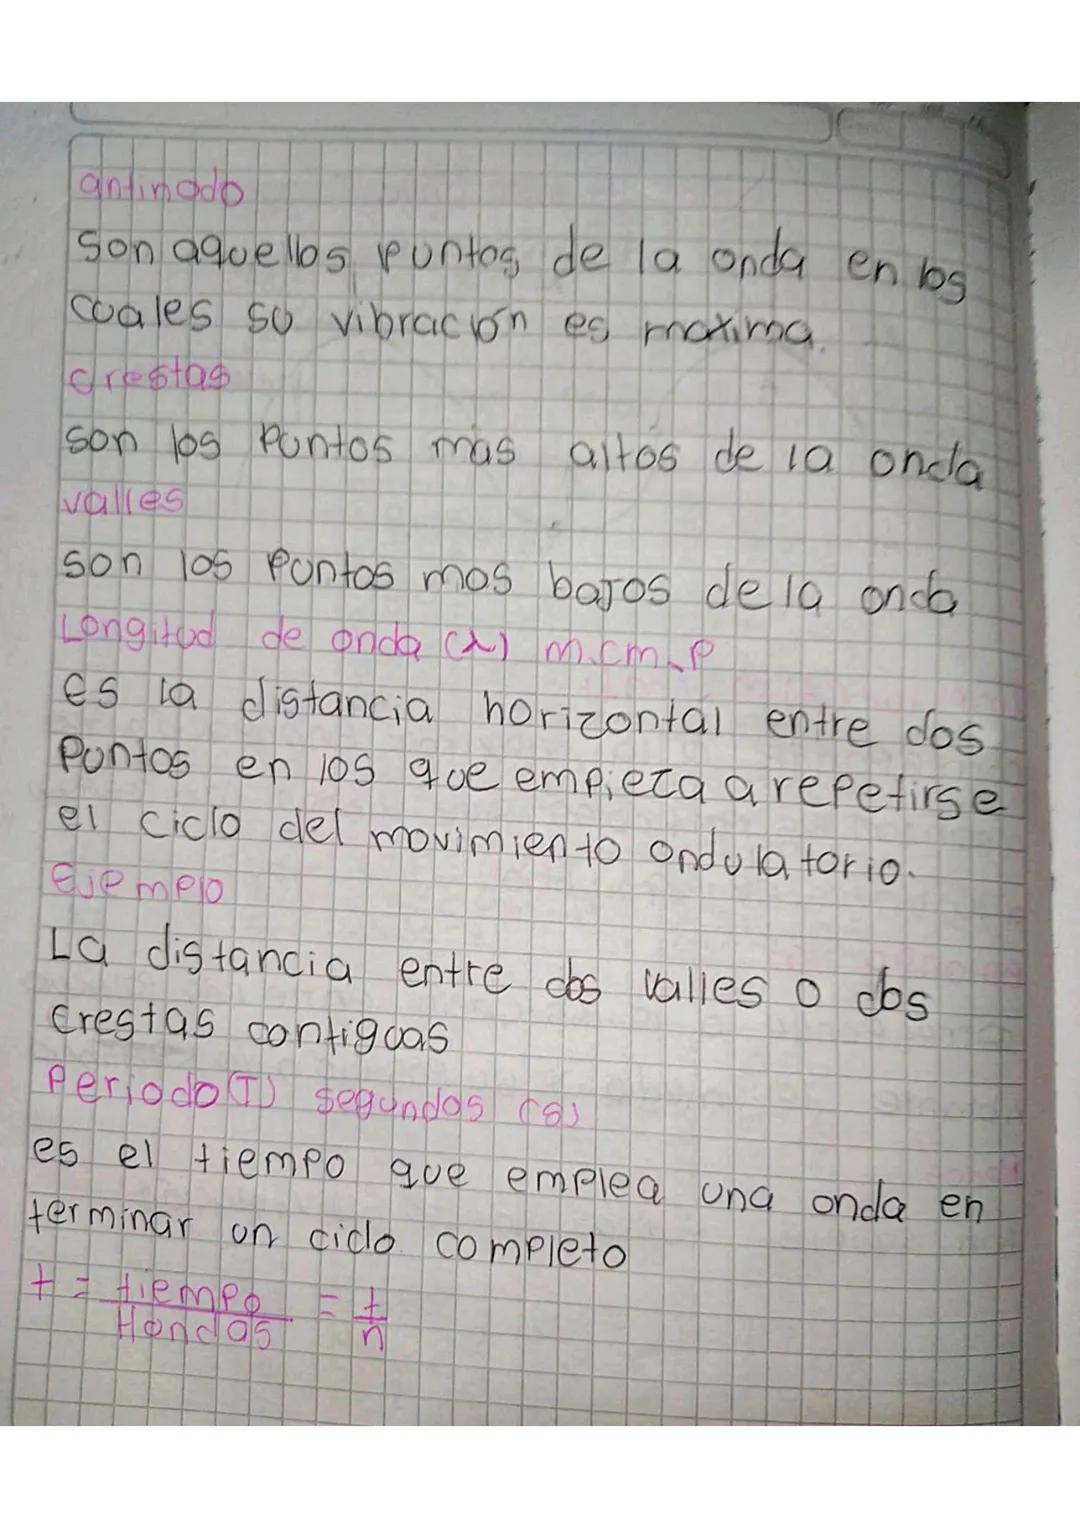 antinodo
son aquellos puntos de la onda en los
cuales su vibración es maxima.
crestas
son los puntos mas altos de la onda
valles
son los puntos mas bajos de la onda
Longitud de onda (λ) m.cm.p
es la distancia horizontal entre dos
puntos en los que empieza a repetirse
el ciclo del movimiento ondulatorio.
Ejemplo
La distancia entre dos valles o dos
crestas contiguas
Periodo (T) segundos (s)
es el tiempo que emplea una onda en
terminar un ciclo completo
t = tiempo / #ondas = t / n